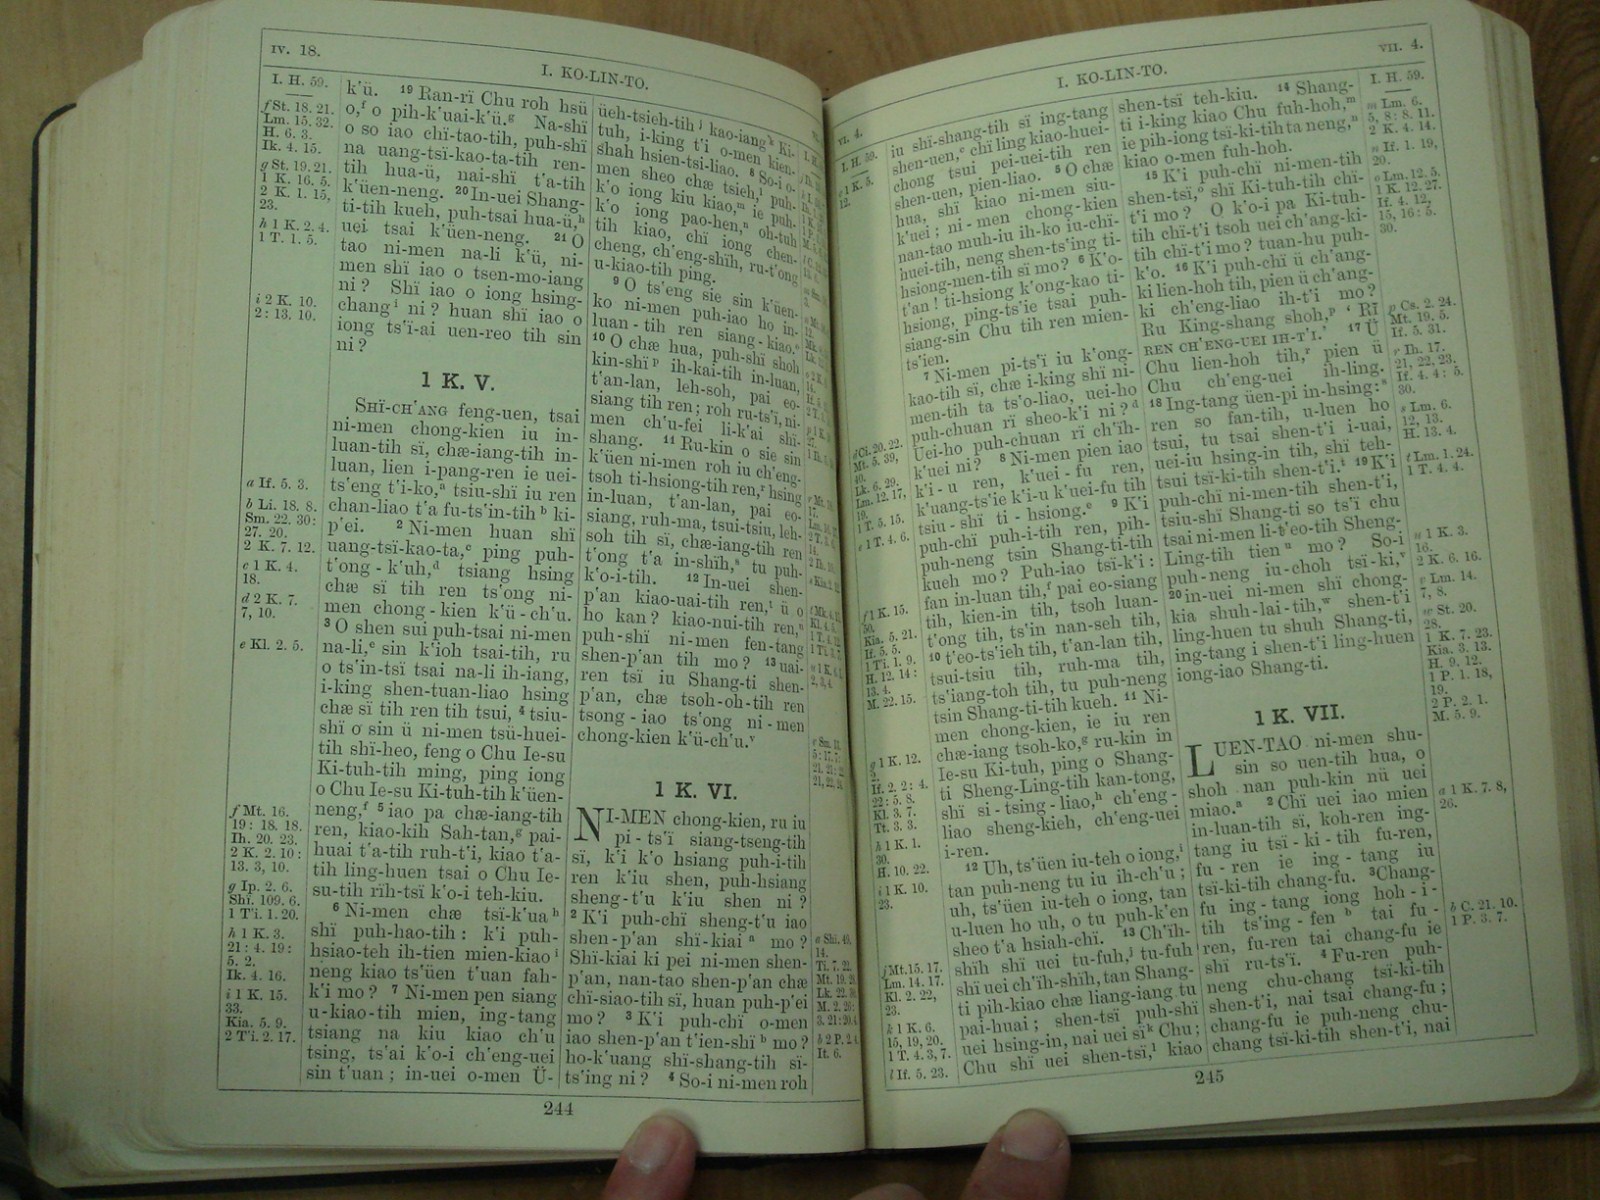 IV. 18.
I. KO-LIN-TO.
I. H. 59.
f St. 18. 21.
Lm. 15. 32.
H. 6. 3.
Ik. 4. 15.
g St. 19. 21.
1 K. 16. 5.
2 K. 1. 15,
23.
h 1 K. 2. 4.
1 T. 1. 5.
i 2 K. 10.
2: 13. 10.
a If. 5. 3.
b Li. 18. 8.
Sm. 22. 30:
27. 20.
2 K. 7. 12.
c 1 K. 4.
18.
d 2 K. 7.
7, 10.
e Kl. 2. 5.
f Mt. 16.
19: 18. 18.
Ih. 20. 23.
2 K. 2. 10:
13. 3, 10.
g Ip. 2. 6.
Shï. 109. 6.
1 T'i. 1. 20.
h 1 K. 3.
21: 4. 19:
5. 2.
Ik. 4. 16.
i 1 K. 15.
33.
Kia. 5. 9.
2 T'i. 2. 17.
k'ü. 19 Ran-rï Chu roh hsü
o,f o pih-k'uai-k'ü.g Na-shï
o so iao chï-tao-tih, puh-shï
na uang-tsï-kao-ta-tih ren-
tih hua-ü, nai-shï t'a-tih
k'üen-neng. 20 In-uei Shang-
ti-tih kueh, puh-tsai hua-ü,h
uei tsai k'üen-neng. 21 O
tao ni-men na-li k'ü, ni-
men shï iao o tsen-mo-iang
ni? Shï iao o iong hsing-
chang i ni? huan shï iao o
iong ts'ï-ai uen-reo tih sin
ni?
1 K. V.
SHÏ-CH'ANG feng-uen, tsai
ni-men chong-kien iu in-
luan-tih sï, chæ-iang-tih in-
luan, lien i-pang-ren ie uei-
ts'eng t'i-ko,a tsiu-shï iu ren
chan-liao t'a fu-ts'in-tih b ki-
p'ei. 2 Ni-men huan shï
uang-tsï-kao-ta,c ping puh-
t'ong-k'uh,d tsiang hsing
chæ sï tih ren ts'ong ni-
men chong-kien k'ü-ch'u.
3 O shen sui puh-tsai ni-men
na-li,e sin k'ioh tsai-tih, ru
o ts'in-tsï tsai na-li ih-iang,
i-king shen-tuan-liao hsing
chæ sï tih ren tih tsui, 4 tsiu-
shï o sin ü ni-men tsü-huei-
tih shï-heo, feng o Chu Ie-su
Ki-tuh-tih ming, ping iong
o Chu Ie-su Ki-tuh-tih k'üen-
neng,f 5 iao pa chæ-iang-tih
ren, kiao-kih Sah-tan,g pai-
huai t'a-tih ruh-t'i, kiao t'a-
tih ling-huen tsai o Chu Ie-
su-tih rïh-tsï k'o-i teh-kiu.
6 Ni-men chæ tsï-k'ua h
shï puh-hao-tih: k'i puh-
hsiao-teh ih-tien mien-kiao i
neng kiao ts'üen t'uan fah-
k'i mo? 7 Ni-men pen siang
u-kiao-tih mien, ing-tang
tsiang na kiu kiao ch'u
tsing, ts'ai k'o-i ch'eng-uei
sin t'uan; in-uei o-men Ü-
üeh-tsieh-tih j kao-iang k Ki-
tuh, i-king t'i o-men kien-
shah hsien-tsi-liao. 8 So-i o-
men sheo chæ tsieh,l puh-
k'o iong kiu kiao,m ie puh-
k'o iong pao-hen,n oh-tuh
tih kiao, chï iong chen-
cheng, ch'eng-shïh, ru-t'ong
u-kiao-tih ping.
9 O ts'eng sie sin k'üen-
ko ni-men puh-iao ho in-
luan-tih ren siang-kiao.o
10 O chæ hua, puh-shï shoh
kin-shï p ih-kai-tih in-luan,
t'an-lan, leh-soh, pai eo-
siang tih ren; roh ru-ts'ï, ni-
men ch'u-fei li-k'ai shï-
shang. 11 Ru-kin o sie sin
k'üen ni-men roh iu ch'eng-
tsoh ti-hsiong-tih ren,r hsing
in-luan, t'an-lan, pai eo-
siang, ruh-ma, tsui-tsiu, leh-
soh tih sï, chæ-iang-tih ren
t'ong t'a in-shïh,s tu puh-
k'o-i-tih. 12 In-uei shen-
p'an kiao-uai-tih ren,t ü o
ho kan? kiao-nui-tih ren,u
puh-shï ni-men fen-tang
shen-p'an tih mo? 13 uai-
ren tsï iu Shang-ti shen-
p'an, chæ tsoh-oh-tih ren
tsong-iao ts'ong ni-men
chong-kien k'ü-ch'u.v
1 K. VI.
NI-MEN chong-kien, ru iu
pi-ts'ï siang-tseng-tih
sï, k'i k'o hsiang puh-i-tih
ren k'iu shen, puh-hsiang
sheng-t'u k'iu shen ni?
2 K'i puh-chï sheng-t'u iao
shen-p'an shï-kiai a mo?
Shï-kiai ki pei ni-men shen-
p'an, nan-tao shen-p'an chæ
chï-siao-tih sï, huan puh-p'ei
mo? 3 K'i puh-chï o-men
iao shen-p'an t'ien-shï b mo?
ho-k'uang shï-shang-tih sï-
ts'ing ni? 4 So-i ni-men roh
a Shi. 49.
14.
Ti. 7. 22.
b 2 P. 2. 4.
It. 6.
244
VI. 4.
I. KO-LIN-TO.
VII. 4.
I. H. 59.
c 1 K. 5.
12.
d Ci. 20. 22.
Mt. 5. 39,
40.
Lk. 6. 29.
Lm. 12. 17,
19.
1 T. 5. 15.
e 1 T. 4. 6.
f 1 K. 15.
50.
Kia. 5. 21.
If. 5. 5.
1 Ti. 1. 9.
H. 12. 14:
13. 4.
M. 22. 15.
g 1 K. 12.
2.
If. 2. 2: 4.
22: 5. 8.
Kl. 3. 7.
Tt. 3. 3.
h 1 K. 1.
30.
H. 10. 22.
i 1 K. 10.
23.
j Mt. 15. 17.
Lm. 14. 17.
Kl. 2. 22,
23.
k 1 K. 6.
15, 19, 20.
1 T. 4. 3, 7.
l If. 5. 23.
iu shï-shang-tih sï ing-tang
shen-uen,c chï ling kiao-huei-
chong tsui pei-uei-tih ren
shen-uen, pien-liao. 5 O chæ
hua, shï kiao ni-men siu-
k'uei; ni-men chong-kien
nan-tao muh-iu ih-ko iu-chï-
huei-tih, neng shen-ts'ing ti-
hsiong-men-tih sï mo? 6 K'o-
t'an! ti-hsiong k'ong-kao ti-
hsiong, ping-ts'ie tsai puh-
siang-sin Chu tih ren mien-
ts'ien.
7 Ni-men pi-ts'ï iu k'ong-
kao-tih sï, chæ i-king shï ni-
men-tih ta ts'o-liao, uei-ho
puh-chuan rï sheo-k'i ni? d
Uei-ho puh-chuan rï ch'ïh-
k'uei ni? 8 Ni-men pien iao
k'i-u ren, k'uei-fu ren,
k'uang-ts'ie k'i-u k'uei-fu tih
tsiu-shï ti-hsiong.e 9 K'i
puh-chï puh-i-tih ren, pih-
puh-neng tsin Shang-ti-tih
kueh mo? Puh-iao tsï-k'i:
fan in-luan tih,f pai eo-siang
tih, kien-in tih, tsoh luan-
t'ong tih, ts'in nan-seh tih,
10 t'eo-ts'ieh tih, t'an-lan tih,
tsui-tsiu tih, ruh-ma tih,
ts'iang-toh tih, tu puh-neng
tsin Shang-ti-tih kueh. 11 Ni-
men chong-kien, ie iu ren
chæ-iang tsoh-ko,g ru-kin in
Ie-su Ki-tuh, ping o Shang-
ti Sheng-Ling-tih kan-tong,
shï si-tsing-liao,h ch'eng-
liao sheng-kieh, ch'eng-uei
i-ren.
12 Uh, ts'üen iu-teh o iong,i
tan puh-neng tu iu ih-ch'u;
uh, ts'üen iu-teh o iong, tan
u-luen ho uh, o tu puh-k'en
sheo t'a hsiah-chï. 13 Ch'ïh-
shïh shï uei tu-fuh,j tu-fuh
shï uei ch'ïh-shïh, tan Shang-
ti pih-kiao chæ liang-iang tu
pai-huai; shen-tsï puh-shï
uei hsing-in, nai uei sï k Chu;
Chu shï uei shen-tsï,l kiao
shen-tsï teh-kiu. 14 Shang-
ti i-king kiao Chu fuh-hoh,m
ie pih-iong tsï-ki-tih ta neng,n
kiao o-men fuh-hoh.
15 K'i puh-chï ni-men-tih
shen-tsï,o shï Ki-tuh-tih chï-
t'i mo? O k'o-i pa Ki-tuh-
tih chï-t'i tsoh uei ch'ang-ki-
tih chï-t'i mo? tuan-hu puh-
k'o. 16 K'i puh-chï ü ch'ang-
ki lien-hoh tih, pien ü ch'ang-
ki ch'eng-liao ih-t'i mo?
Ru King-shang shoh,p ‘ RÏ
REN CH'ENG-UEI IH-T'I.’ 17 Ü
Chu lien-hoh tih,r pien ü
Chu ch'eng-uei ih-ling.
18 Ing-tang üen-pi in-hsing:s
ren so fan-tih, u-luen ho
tsui, tu tsai shen-t'i i-uai,
uei-iu hsing-in tih, shï teh-
tsui tsï-ki-tih shen-t'i.t 19 K'i
puh-chï ni-men-tih shen-t'i,
tsiu-shï Shang-ti so ts'ï chu
tsai ni-men li-t'eo-tih Sheng-
Ling-tih tien u mo? So-i
puh-neng iu-choh tsï-ki,v
20 in-uei ni-men shï chong-
kia shuh-lai-tih,w shen-t'i
ling-huen tu shuh Shang-ti,
ing-tang i shen-t'i ling-huen
iong-iao Shang-ti.
1 K. VII.
LUEN-TAO ni-men shu-
sin so uen-tih hua, o
shoh nan puh-kin nü uei
miao.a 2 Chï uei iao mien
in-luan-tih sï, koh-ren ing-
tang iu tsi-ki-tih fu-ren,
fu-ren ie ing-tang iu
tsï-ki-tih chang-fu. 3 Chang-
fu ing-tang iong hoh-i-
tih ts'ing-fen b tai fu-
ren, fu-ren tai chang-fu ie
shï ru-ts'ï. 4 Fu-ren puh-
neng chu-chang tsï-ki-tih
shen-t'i, nai tsai chang-fu;
chang-fu ie puh-neng chu-
chang tsï-ki-tih shen-t'i, nai
I. H. 59.
m Lm. 6.
5, 8: 8. 11.
2 K. 4. 14.
n If. 1. 19,
20.
o Lm. 12. 5.
1 K. 12. 27.
If. 4. 12,
15, 16: 5.
30.
p Cs. 2. 24.
Mt. 19. 5.
If. 5. 31.
r Ih. 17.
21, 22, 23.
If. 4. 4: 5.
30.
s Lm. 6.
12, 13.
H. 13. 4.
t Lm. 1. 24.
1 T. 4. 4.
u 1 K. 3.
16.
2 K. 6. 16.
v Lm. 14.
7, 8.
w St. 20.
28.
1 K. 7. 23.
Kia. 3. 13.
H. 9. 12.
1 P. 1. 18,
19.
2 P. 2. 1.
M. 5. 9.
a 1 K. 7. 8,
26.
b C. 21. 10.
1 P. 3. 7.
245